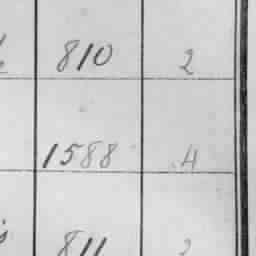 810 2
1588 4
811 2